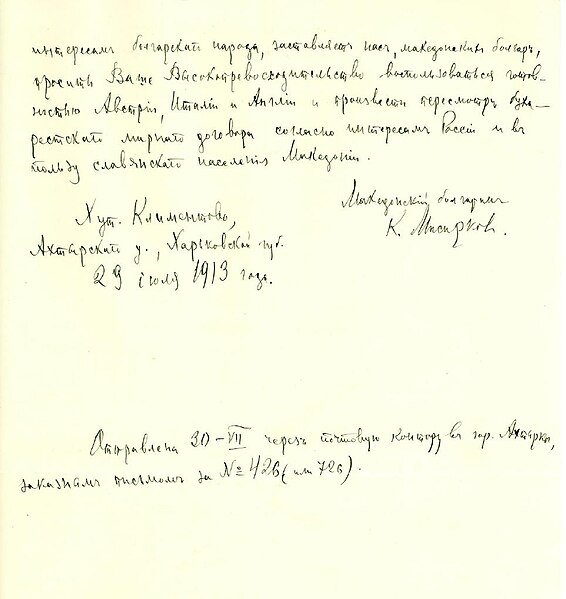 интересамъ болгарскаго народа, заставляетъ насъ, македонскихъ болгаръ,
просить Ваше Высокопревосходительство воспользоваться готов-
ностью Австріи, Италіи и Англіи и произвести пересмотръ буха-
рестскаго мирнаго договора согласно интересамъ Россіи и въ
пользу славянскаго населенія Македоніи.
Македонскій болгаринъ
К. Мисирковъ.
Хут. Климентово,
Ахтырскаго у., Харьковской губ.
29 іюля 1913 года.
Отправлена 30-VII черезъ почтовую контору въ гор. Ахтырки,
заказнымъ письмомъ за № 426 (или 726).